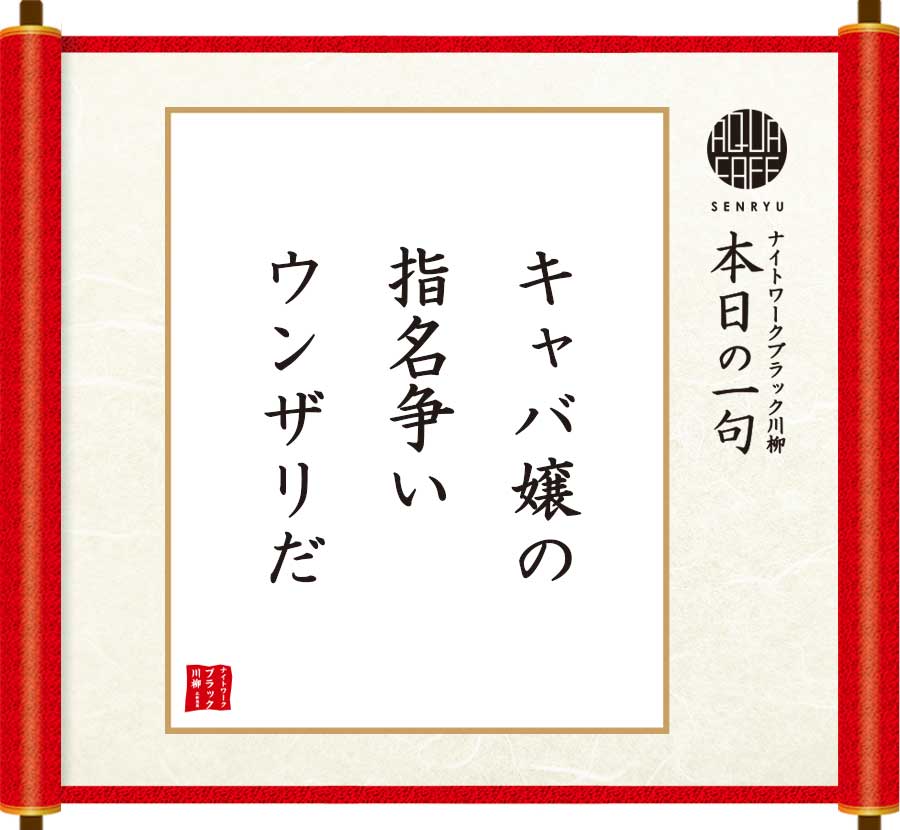 AQUA
CAFE
SENRYU
ナイトワークブラック川柳
本日の一句
キャバ嬢の
指名争い
ウンザリだ
ナイトワーク
ブラック
川柳